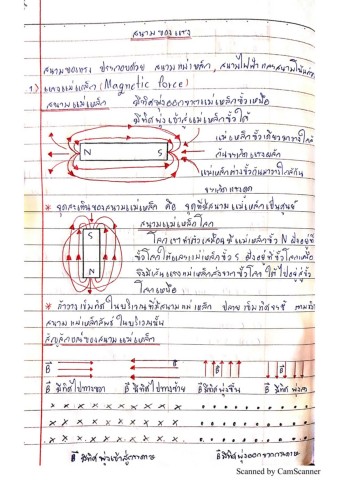 สนามของแรง
สนามของแรง ประกอบด้วย สนามแม่เหล็ก, สนามไฟฟ้า และสนามโน้มถ่วง
1.) แรงแม่เหล็ก (Magnetic force)
สนามแม่เหล็ก มีทิศพุ่งออกจากแม่เหล็กขั้วเหนือ
มีทิศพุ่งเข้าสู่แม่เหล็กขั้วใต้
แม่เหล็กขั้วเดียวมาวางใกล้
กันจะเกิดแรงผลัก
N S
แม่เหล็กต่างขั้วกันมาวางใกล้กัน
จะเกิดแรงดูด
* จุดสะเทินของสนามแม่เหล็ก คือ จุดที่มีสนามแม่เหล็กเป็นศูนย์
สนามแม่เหล็กโลก
S
โลกเราทำตัวเสมือนมีแม่เหล็กขั้ว N ฝังอยู่ที่
ขั้วโลกใต้และแม่เหล็กขั้ว S ฝังอยู่ที่ขั้วโลกเหนือ
N
จึงมีเส้นแรงแม่เหล็กส่งจากขั้วโลกใต้ไปสู่ขั้ว
โลกเหนือ
* ถ้าวางเข็มทิศในบริเวณที่มีสนามแม่เหล็ก ปลายเข็มทิศจะชี้ ตามทิศ
สนามแม่เหล็กลัพธ์ในบริเวณนั้น
สัญลักษณ์ของสนามแม่เหล็ก
B B B B
B มีทิศไปทางขวา B มีทิศไปทางซ้าย B มีทิศพุ่งขึ้น B มีทิศพุ่งลง
x x x x x x x x x
x x x x x x x x x
x x x x x x x x x
B มีทิศพุ่งเข้าสู่กระดาษ B มีทิศพุ่งออกจากกระดาษ
Scanned by CamScanner